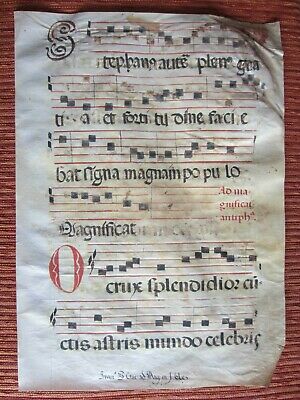 Stephanꝰ autē plenꝰ gra
ti a et forti tu dine facie
bat signa magna in po pu lo
Ad ma
gnificat
antiphᵒ.
Magnificat
O crux splendidior cū
ctis astris mundo celebris